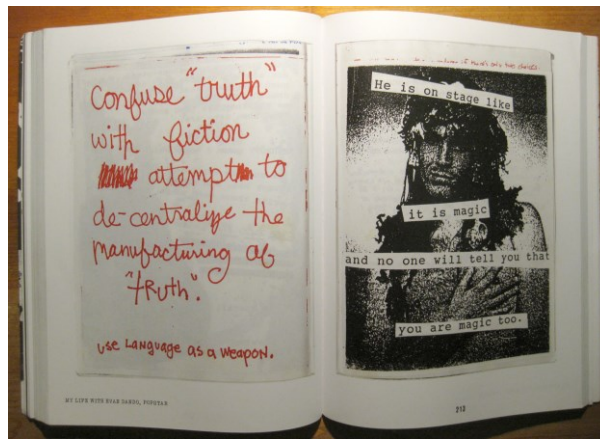 Confuse "truth"
with fiction
attempt to
de-centralize the
manufacturing of
"truth".
use Language as a weapon.
MY LIFE WITH EVAN DANDO, POPSTAR
He is on stage like
it is magic
and no one will tell you that
you are magic too.
213